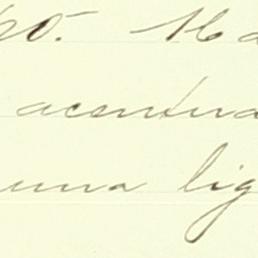 po. Ha
acentua
uma lig